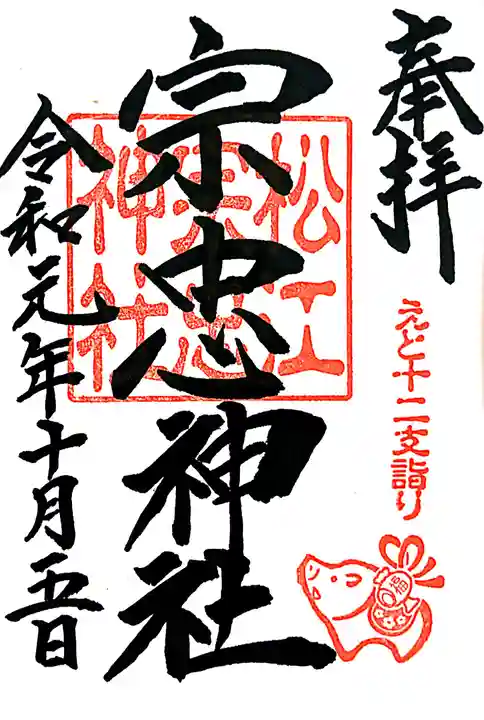 奉拝
えと十二支詣り
福
宗忠神社
松江
宗忠
神社
令和元年十月五日